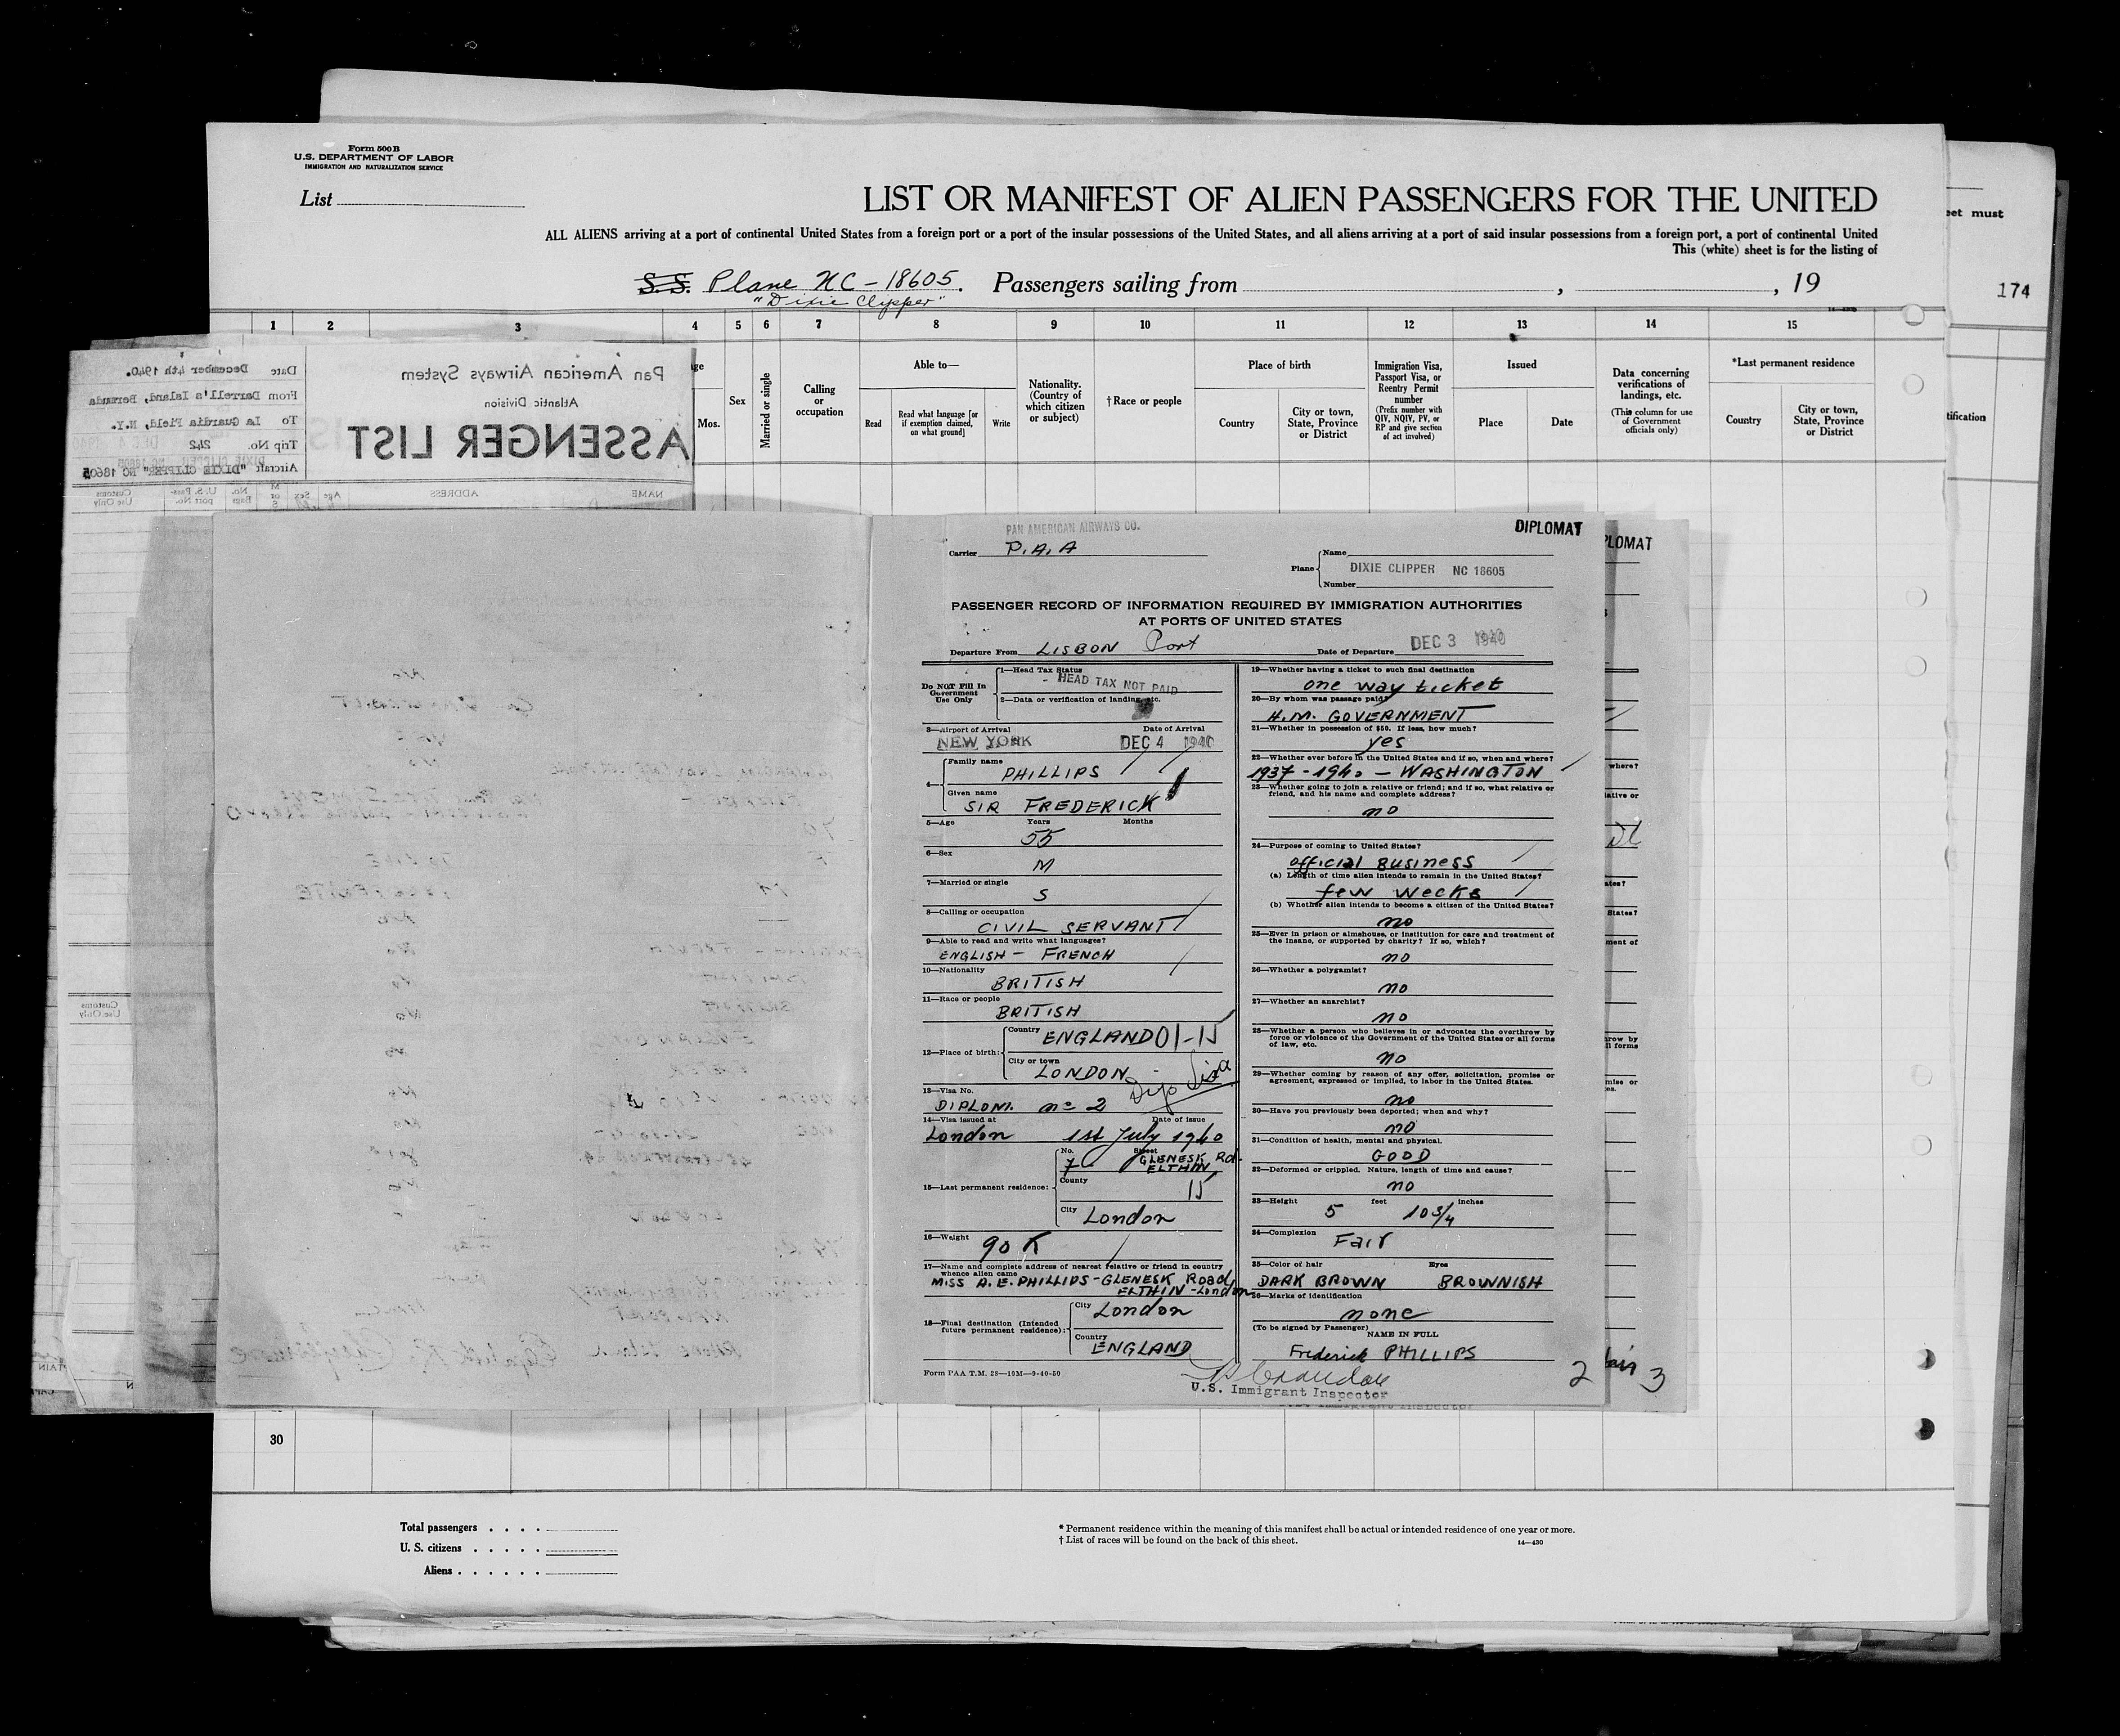 Form 500 B
U.S. DEPARTMENT OF LABOR
IMMIGRATION AND NATURALIZATION SERVICE
List
LIST OR MANIFEST OF ALIEN PASSENGERS FOR THE UNITED
ALL ALIENS arriving at a port of continental United States from a foreign port or a port of the insular possessions of the United States, and all aliens arriving at a port of said insular possessions from a foreign port, a port of continental United
This (white) sheet is for the listing of
S.S. Plane NC-18605. Passengers sailing from , , 19
"Dixie Clipper"
eet must
174
tification
1 2 3 4 5 6 7 8 9 10 11 12 13 14 15
Mos.
Sex
Married or single
Calling or occupation
Able to—
Read
Read what language [or if exemption claimed, on what ground]
Write
Nationality. (Country of which citizen or subject)
†Race or people
Place of birth
Country
City or town, State, Province or District
Immigration Visa, Passport Visa, or Reentry Permit number
(Prefix number with QIV, NQIV, PV, or RP and give section of act involved)
Issued
Place
Date
Data concerning verifications of landings, etc.
(This column for use of Government officials only)
*Last permanent residence
Country
City or town, State, Province or District
Pan American Airways System
Atlantic Division
ASSENGER LIST
Date December 4th 1940.
From Darrell's Island, Bermuda
To La Guardia Field, N.Y.
Trip No. 242
Aircraft "DIXIE CLIPPER" NC 18605
NAME ADDRESS Age Sex M or S No. Bags U.S. Pass-port No. Customs Use Only
Customs Use Only
PAN AMERICAN AIRWAYS CO.
DIPLOMAT
PLOMAT
Carrier P.A.A
Plane Name
DIXIE CLIPPER NC 18605
Number
PASSENGER RECORD OF INFORMATION REQUIRED BY IMMIGRATION AUTHORITIES
AT PORTS OF UNITED STATES
Departure From LISBON Port Date of Departure DEC 3 1940
Do NOT Fill In Government Use Only
1—Head Tax Status
- HEAD TAX NOT PAID
2—Data or verification of landing, etc.
3—Airport of Arrival Date of Arrival
NEW YORK DEC 4 1940
4— Family name
PHILLIPS
Given name
SIR FREDERICK
5—Age Years Months
55
6—Sex
M
7—Married or single
S
8—Calling or occupation
CIVIL SERVANT
9—Able to read and write what languages?
ENGLISH - FRENCH
10—Nationality
BRITISH
11—Race or people
BRITISH
12—Place of birth: Country
ENGLAND 01-15
City or town
LONDON
Dip Visa
13—Visa No.
DIPLOM. no 2
14—Visa issued at Date of issue
London 1st July 1940
15—Last permanent residence: No. Street
7 GLENESK Rd.
ELTHIN
County
15
City
London
16—Weight
90 K
17—Name and complete address of nearest relative or friend in country whence alien came
MISS A. E. PHILLIPS - GLENESK Road
ELTHIN - London
18—Final destination (Intended future permanent residence): City
London
Country
ENGLAND
Form PAA T.M. 28—10M—9-40-50
19—Whether having a ticket to such final destination
one way ticket
20—By whom was passage paid?
H.M. GOVERNMENT
21—Whether in possession of $50. If less, how much?
yes
22—Whether ever before in the United States and if so, when and where?
1937-1940 - WASHINGTON
23—Whether going to join a relative or friend; and if so, what relative or friend, and his name and complete address?
no
24—Purpose of coming to United States?
official BUSINESS
(a) Length of time alien intends to remain in the United States?
few weeks
(b) Whether alien intends to become a citizen of the United States?
no
25—Ever in prison or almshouse, or institution for care and treatment of the insane, or supported by charity? If so, which?
no
26—Whether a polygamist?
no
27—Whether an anarchist?
no
28—Whether a person who believes in or advocates the overthrow by force or violence of the Government of the United States or all forms of law, etc.
no
29—Whether coming by reason of any offer, solicitation, promise or agreement, expressed or implied, to labor in the United States.
no
30—Have you previously been deported; when and why?
no
31—Condition of health, mental and physical.
GOOD
32—Deformed or crippled. Nature, length of time and cause?
no
33—Height feet inches
5 10 3/4
34—Complexion
Fair
35—Color of hair Eyes
DARK BROWN BROWNISH
36—Marks of identification
none
(To be signed by Passenger)
NAME IN FULL
Frederick PHILLIPS
U.S. Immigrant Inspector
2
3
30
Total passengers
U. S. citizens
Aliens
* Permanent residence within the meaning of this manifest shall be actual or intended residence of one year or more.
† List of races will be found on the back of this sheet.
14—430